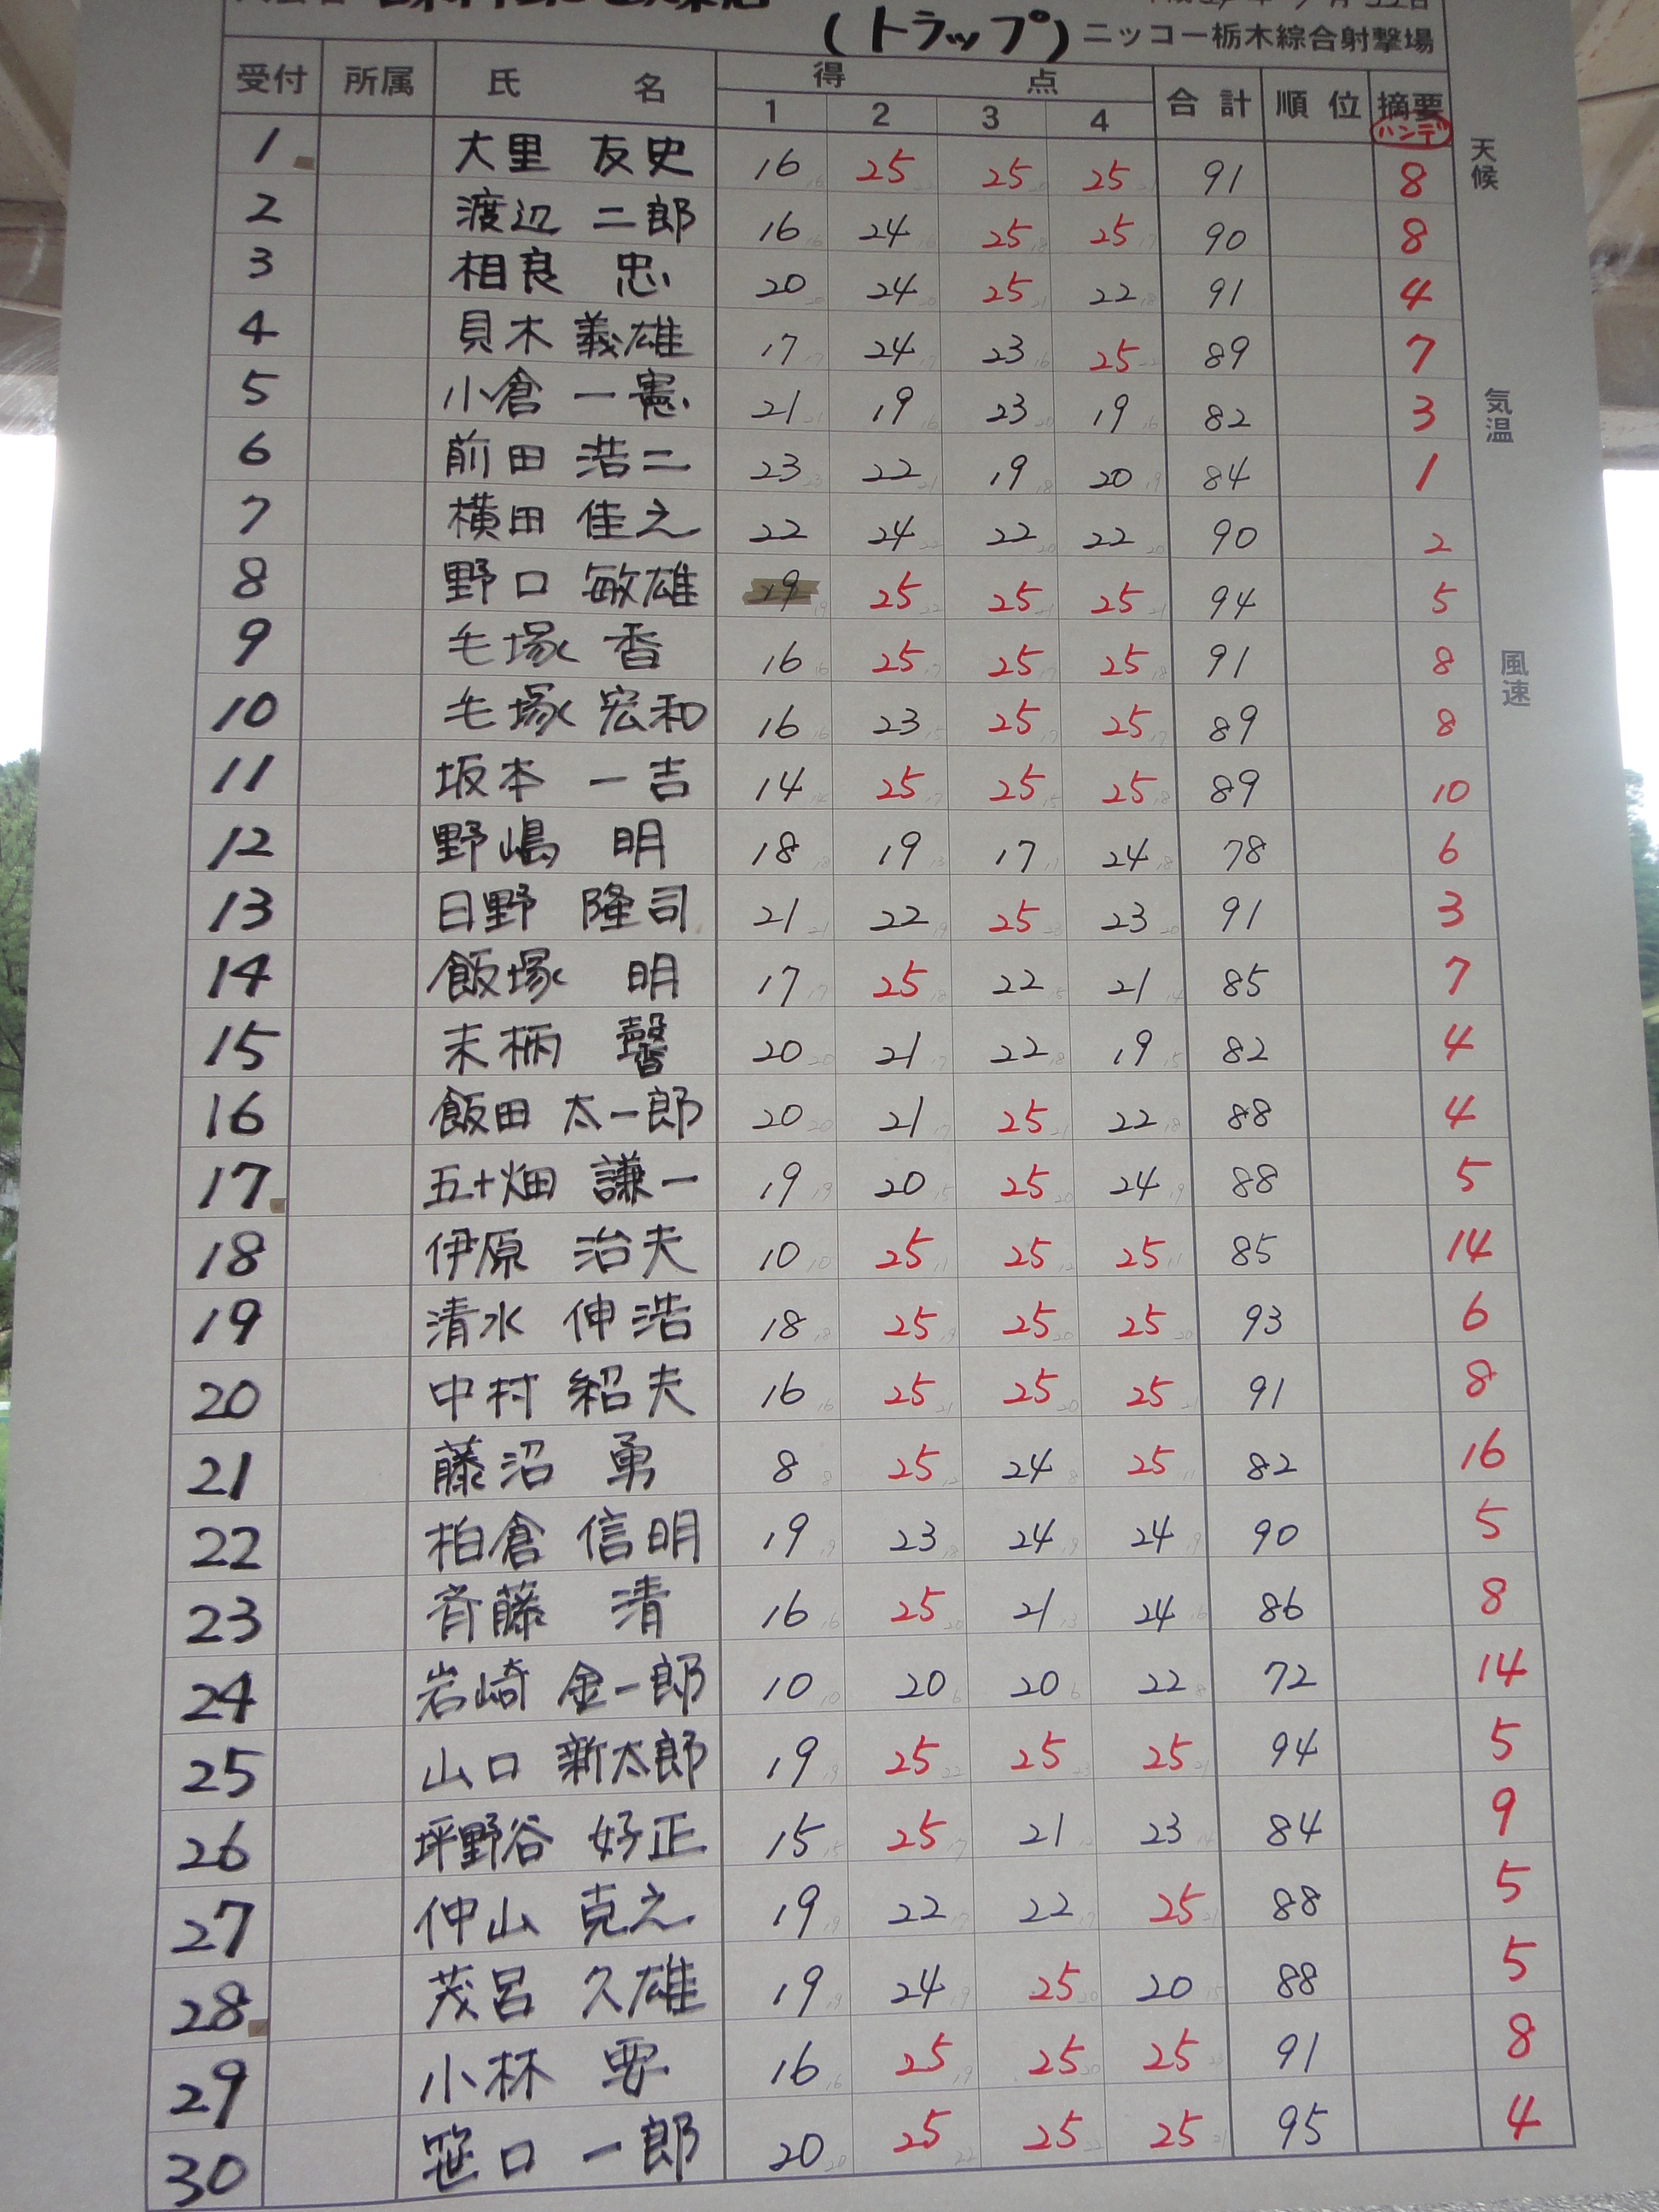 (トラップ) ニッコー栃木綜合射撃場
受付 所属 氏 名 得 点 合計 順位 摘要
1 2 3 4 ハンデ
天候
気温
風速
1 大里 友史 16 25 25 25 91 8
2 渡辺 二郎 16 24 25 25 90 8
3 相良 忠 20 24 25 22 91 4
4 貝木 義雄 17 24 23 25 89 7
5 小倉 一憲 21 19 23 19 82 3
6 前田 浩二 23 22 19 20 84 1
7 横田 佳之 22 24 22 22 90 2
8 野口 敏雄 19 25 25 25 94 5
9 毛塚 香 16 25 25 25 91 8
10 毛塚 宏和 16 23 25 25 89 8
11 坂本 一吉 14 25 25 25 89 10
12 野嶋 明 18 19 17 24 78 6
13 日野 隆司 21 22 25 23 91 3
14 飯塚 明 17 25 22 21 85 7
15 末柄 馨 20 21 22 19 82 4
16 飯田 太一郎 20 21 25 22 88 4
17 五十畑 謙一 19 20 25 24 88 5
18 伊原 治夫 10 25 25 25 85 14
19 清水 伸浩 18 25 25 25 93 6
20 中村 紹夫 16 25 25 25 91 8
21 藤沼 勇 8 25 24 25 82 16
22 柏倉 信明 19 23 24 24 90 5
23 斉藤 清 16 25 21 24 86 8
24 岩崎 金一郎 10 20 20 22 72 14
25 山口 新太郎 19 25 25 25 94 5
26 坪野谷 好正 15 25 21 23 84 9
27 仲山 克之 19 22 22 25 88 5
28 茂呂 久雄 19 24 25 20 88 5
29 小林 要 16 25 25 25 91 8
30 笹口 一郎 20 25 25 25 95 4